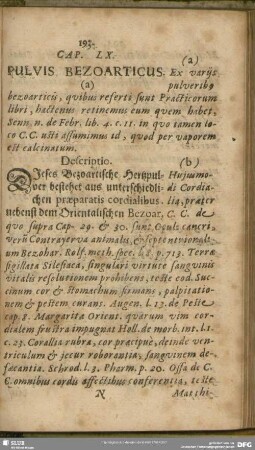 193.
CAP. LX.
(a)
PULVIS BEZOARTICUS. Ex varijs
(a) pulveribꝰ
bezoarticis, quibus referti sunt Practicorum
libri, hactenus retinemus eum quem habet,
Senn. n. de Febr. lib. 4. c. 11. in quo tamen lo-
co C.C. usti assumimus id, quod per vaporem
est calcinatum.
Descriptio. (b)
Dieses Bezoartische Hertzpul- Hujusmo-
ver bestehet aus unterschiedli- di Cordia-
chen præparatis cordialibus. lia, præter
nebenst dem Orientalischen Bezoar, C. C. de
quo supra Cap. 29. & 30. sunt Oculi cancri,
verũ Contrayerva animalis, & septentrionaliũ-
um Bezohar. Rolf. meth. spec. l. p. 713. Terra
sigillata Silesiaca, singulari virtute sangvinis
vitalis resolutionem prohibens, teste eod. Suc-
cinum cor & stomachum firmans, palpitatio-
nem & pestem curans. Augen. l. 13. de Peste
cap. 8. Margarita Orient. quarum vim cor-
dialem frustra impugnat Holl. de morb. int. l. 1.
c. 23. Corallia rubra, cor præcipuè, deinde ven-
triculum & jecur roborantia, sangvinem de-
fæcantia. Schrod. l. 3. Pharm. p. 20. Ossa de C.
C. omnibus cordis affectibus conferentia, teste
N Matthi-